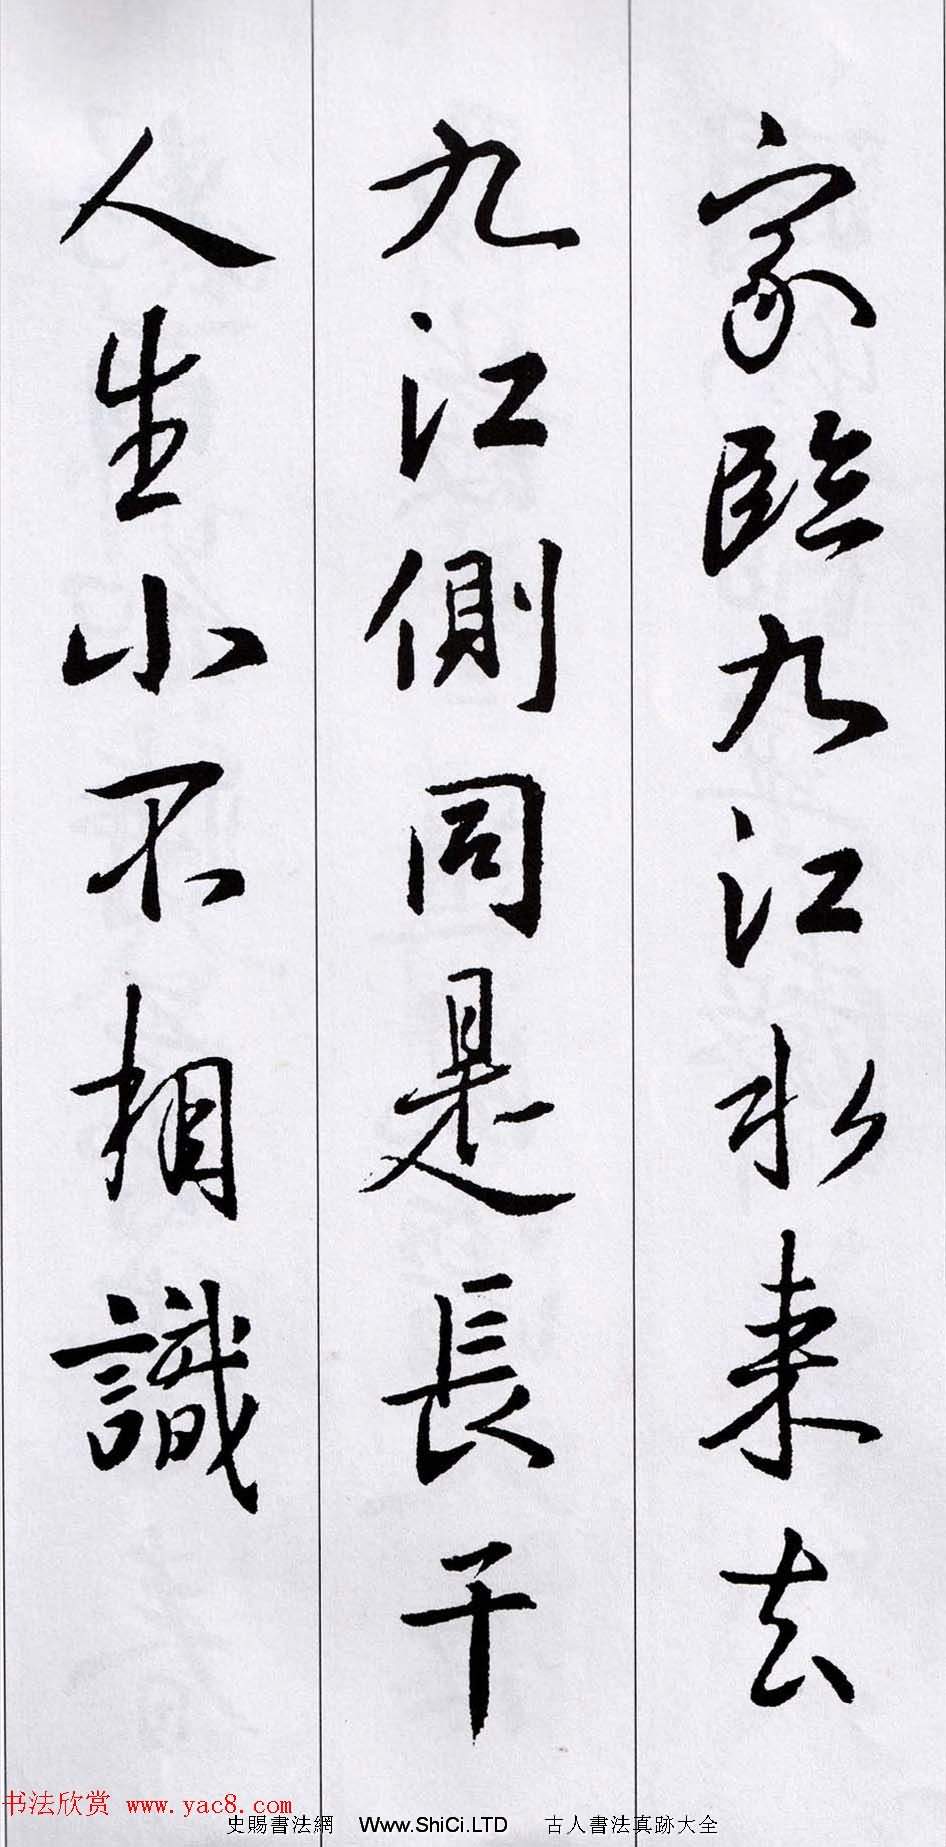 家臨九江水来去
九江側同是長干
人生小不相識
书法欣赏 www.yac8.com
史賜書法網 Www.ShiCi.LTD 古人書法真跡大全